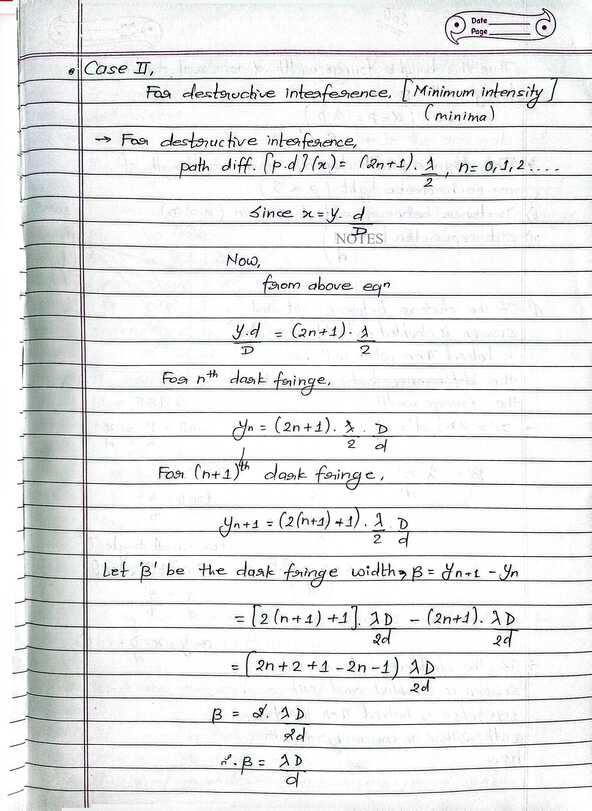 Date
Page
Case II,
For destructive interference, [Minimum intensity]
(minima)
→ For destructive interference,
path diff. [p.d] (x) = (2n+1). λ/2, n= 0,1,2....
Since x = y. d/D
NOTES
Now,
from above eqn
y.d/D = (2n+1). λ/2
For nth dark fringe,
yn = (2n+1). λ/2 . D/d
For (n+1)th dark fringe,
yn+1 = (2(n+1)+1). λ/2 . D/d
Let 'β' be the dark fringe width, β = yn+1 - yn
= [2(n+1)+1]. λD/2d - (2n+1). λD/2d
= (2n+2+1-2n-1) λD/2d
β = 2. λD/2d
∴ β = λD/d